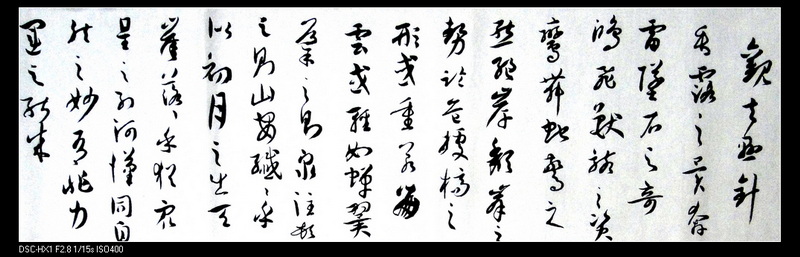 觀夫懸針
垂露之異奔
雷墜石之奇
鴻飛獸駭之資
鸞舞蛇驚之
態絕岸頹峯之
勢臨危據槁之
形或重若崩
雲或輕如蟬翼
導之則泉注頓
之則山安纖纖乎
似初月之出天
崖落落乎猶眾
星之列河漢同自
然之妙有非力
運之能成
DSC-HX1 F2.8 1/15s ISO400